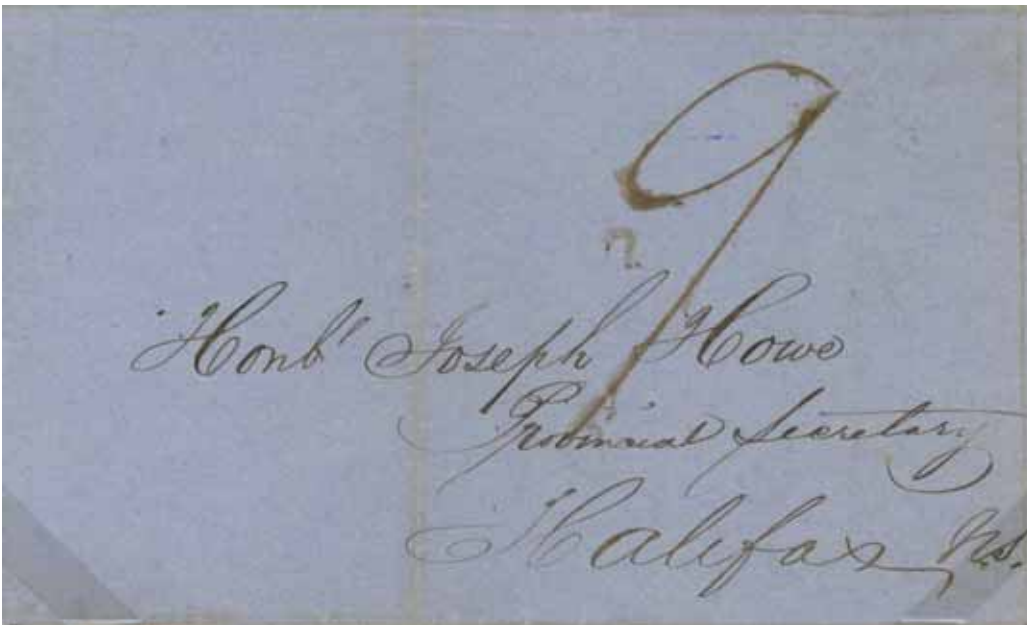 9
Honbl Joseph Howe
Provincial Secretary
Halifax, N.S.